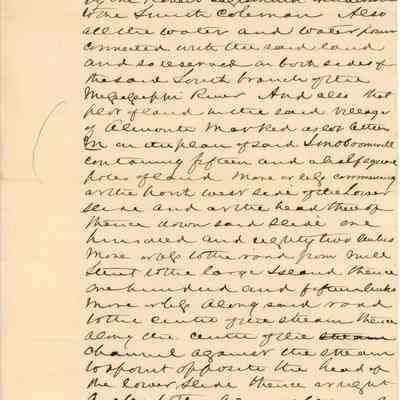 to the Smith Coleman Also
all the water and water power
connected with the said land
and so reserved on both sides of
the said South branch of the
Mississippi River And also that
plot of land in the said village
of Almonte Marked as lot letter
in the plan of said
containing fifteen and a half square
poles of land More or less commencing
at the North west side of the Lower
Slide and at the head thereof
thence down said Slide one
hundred and eighty two links
More or less to the road from Mill
Street to the large Island thence
one hundred and fifteen links
More or less along said road
to the centre of the stream thence
along the centre of the stream
channel against the stream
to a point opposite the head of
the Lower Slide thence at right